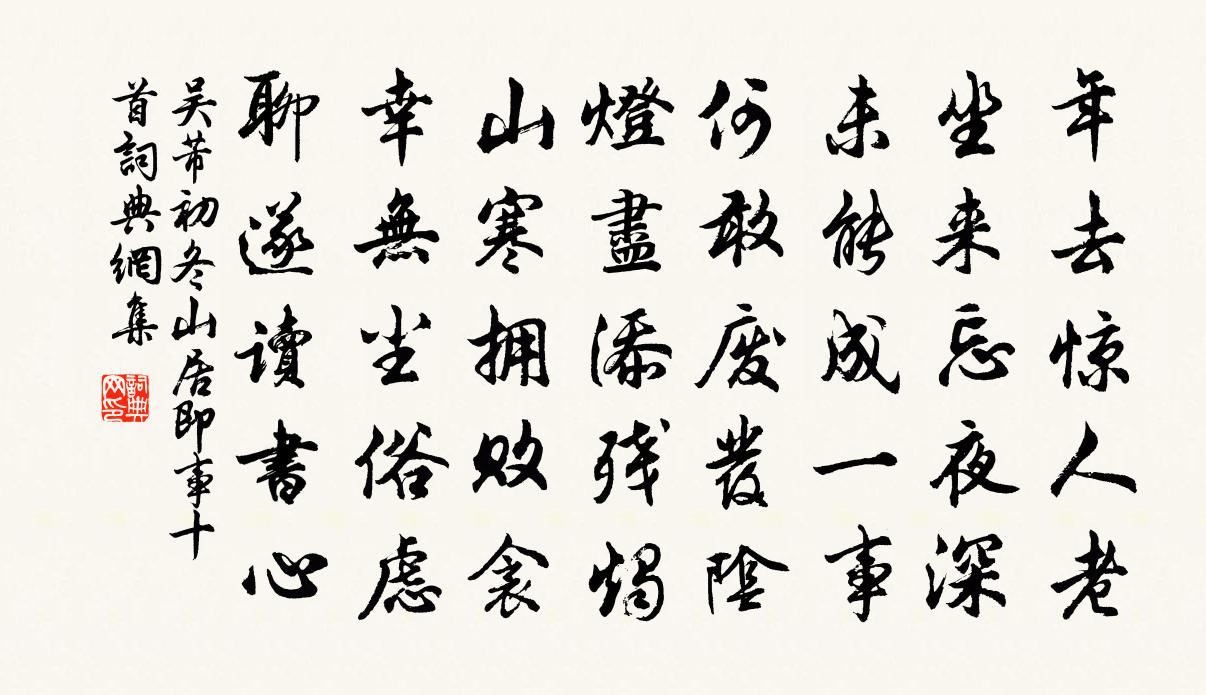 年去惊人老
坐来忘夜深
未能成一事
何敢废發陰
燈盡添残燭
山寒拥败衾
幸無尘俗慮
聊遂讀書心
吴芾初冬山居即事十
首詞典網集
詞典网印